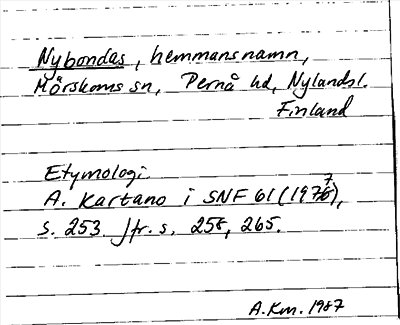 Nybondas, hemmansnamn,
Mörskoms sn, Pernå hd, Nylandsl.
Finland
Etymologi
A. Kartano i SNF 61 (1977),
s. 253 Jfr. s. 258, 265.
A.Km. 1987